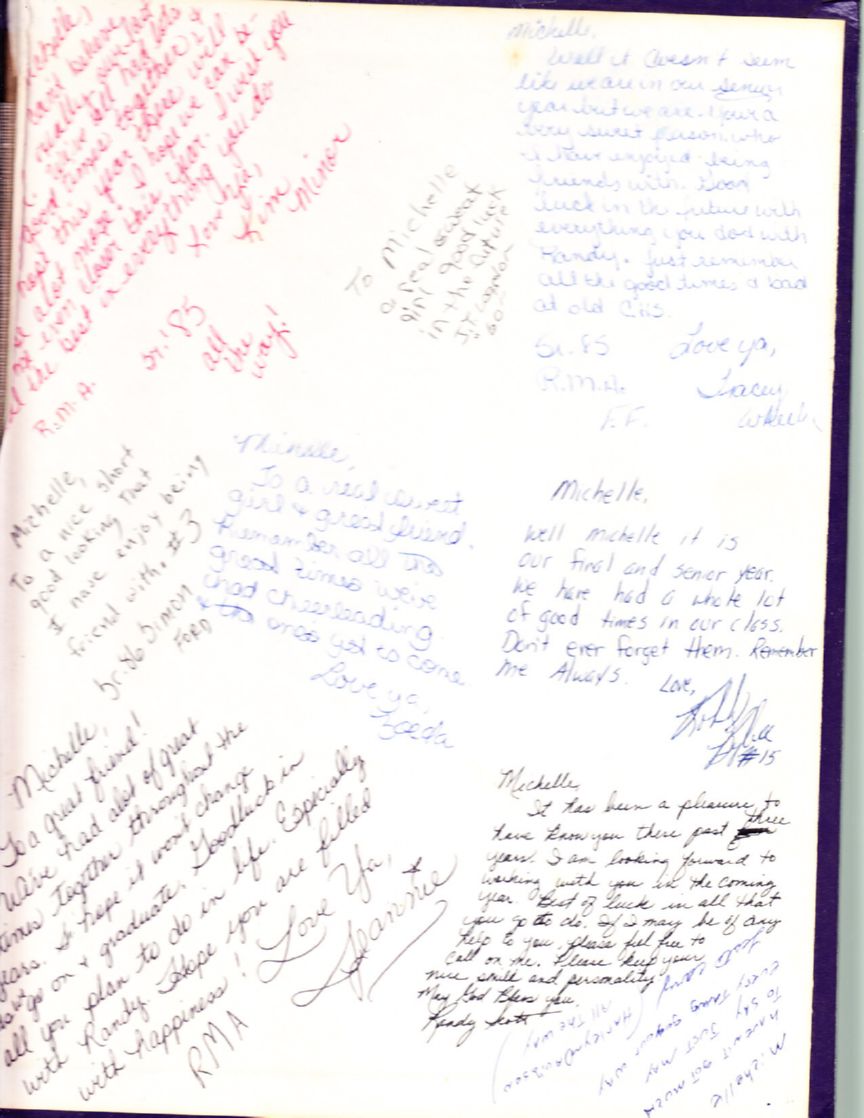 Michelle,
hard believe
really our last
We've all had lots of
good times together &
hope this year there will
be alot more. I hope we can be-
come even closer this year. I wish you
all the best in everything you do
Love ya,
Kim Minor
R.M.A. Sr. '85 all
the
way!
To Michelle
a real sweet
girl good luck
in the future
J.T.
Michelle,
Well it doesn't seem
like we are in our senior
year but we are. Your a
very sweet person who
I have enjoyed being
friends with. Good
luck in the future with
everything you do & with
Randy. Just remember
all the good times & bad
at old CHS.
Sr. 85 Love ya,
R.M.A. Tracey
F.F.
Michelle,
To a nice short
good looking that
I have enjoy being
friend with. #3
Sr. 86 Simon
Ford
Michelle,
To a real sweet
girl & great friend.
Remember all the
great times we've
had cheerleading
& the ones yet to come.
Love ya,
Michelle,
Well Michelle it is
our final and senior year.
We have had a whole lot
of good times in our class.
Don't ever forget them. Remember
me Always. Love,
#15
Michelle,
To a great friend!
We've had alot of great
times together throughout the
years. I hope it won't change
go on & graduate. Goodluck in
all you plan to do in life. Especially
with Randy. Hope you are filled
with happiness!
Love Ya,
Jeannie
RMA
Michelle,
It has been a pleasure to
have know you there past three
years. I am looking forward to
working with you in the coming
year. Best of luck in all that
you go to do. If I may be of any
help to you, please feel free to
call on me. Please keep your
nice smile and personality.
May God Bless you.
Randy Scott
Michelle
haven't got much
to say just may
every thing go your way
(Harley Davidson
All the way)